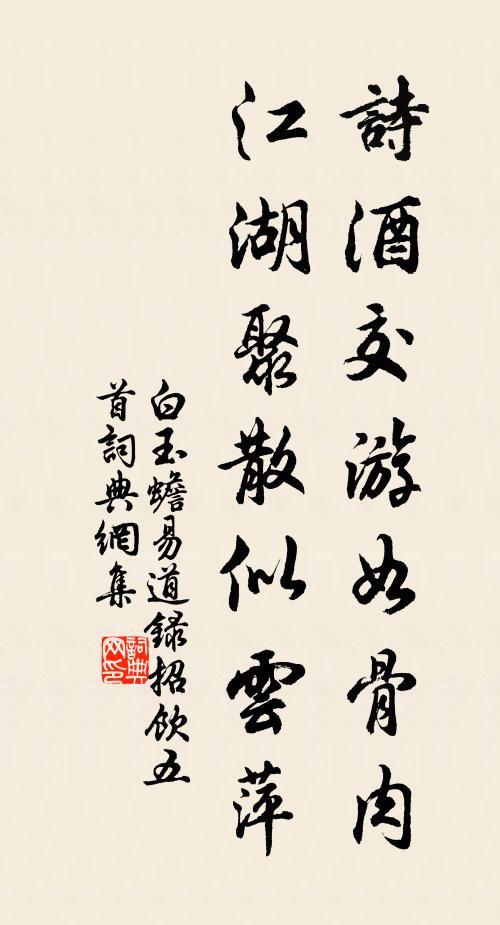 詩酒交游如骨肉
江湖聚散似雲萍
白玉蟾易道録招飲五
首詞典網集
詞典
网印